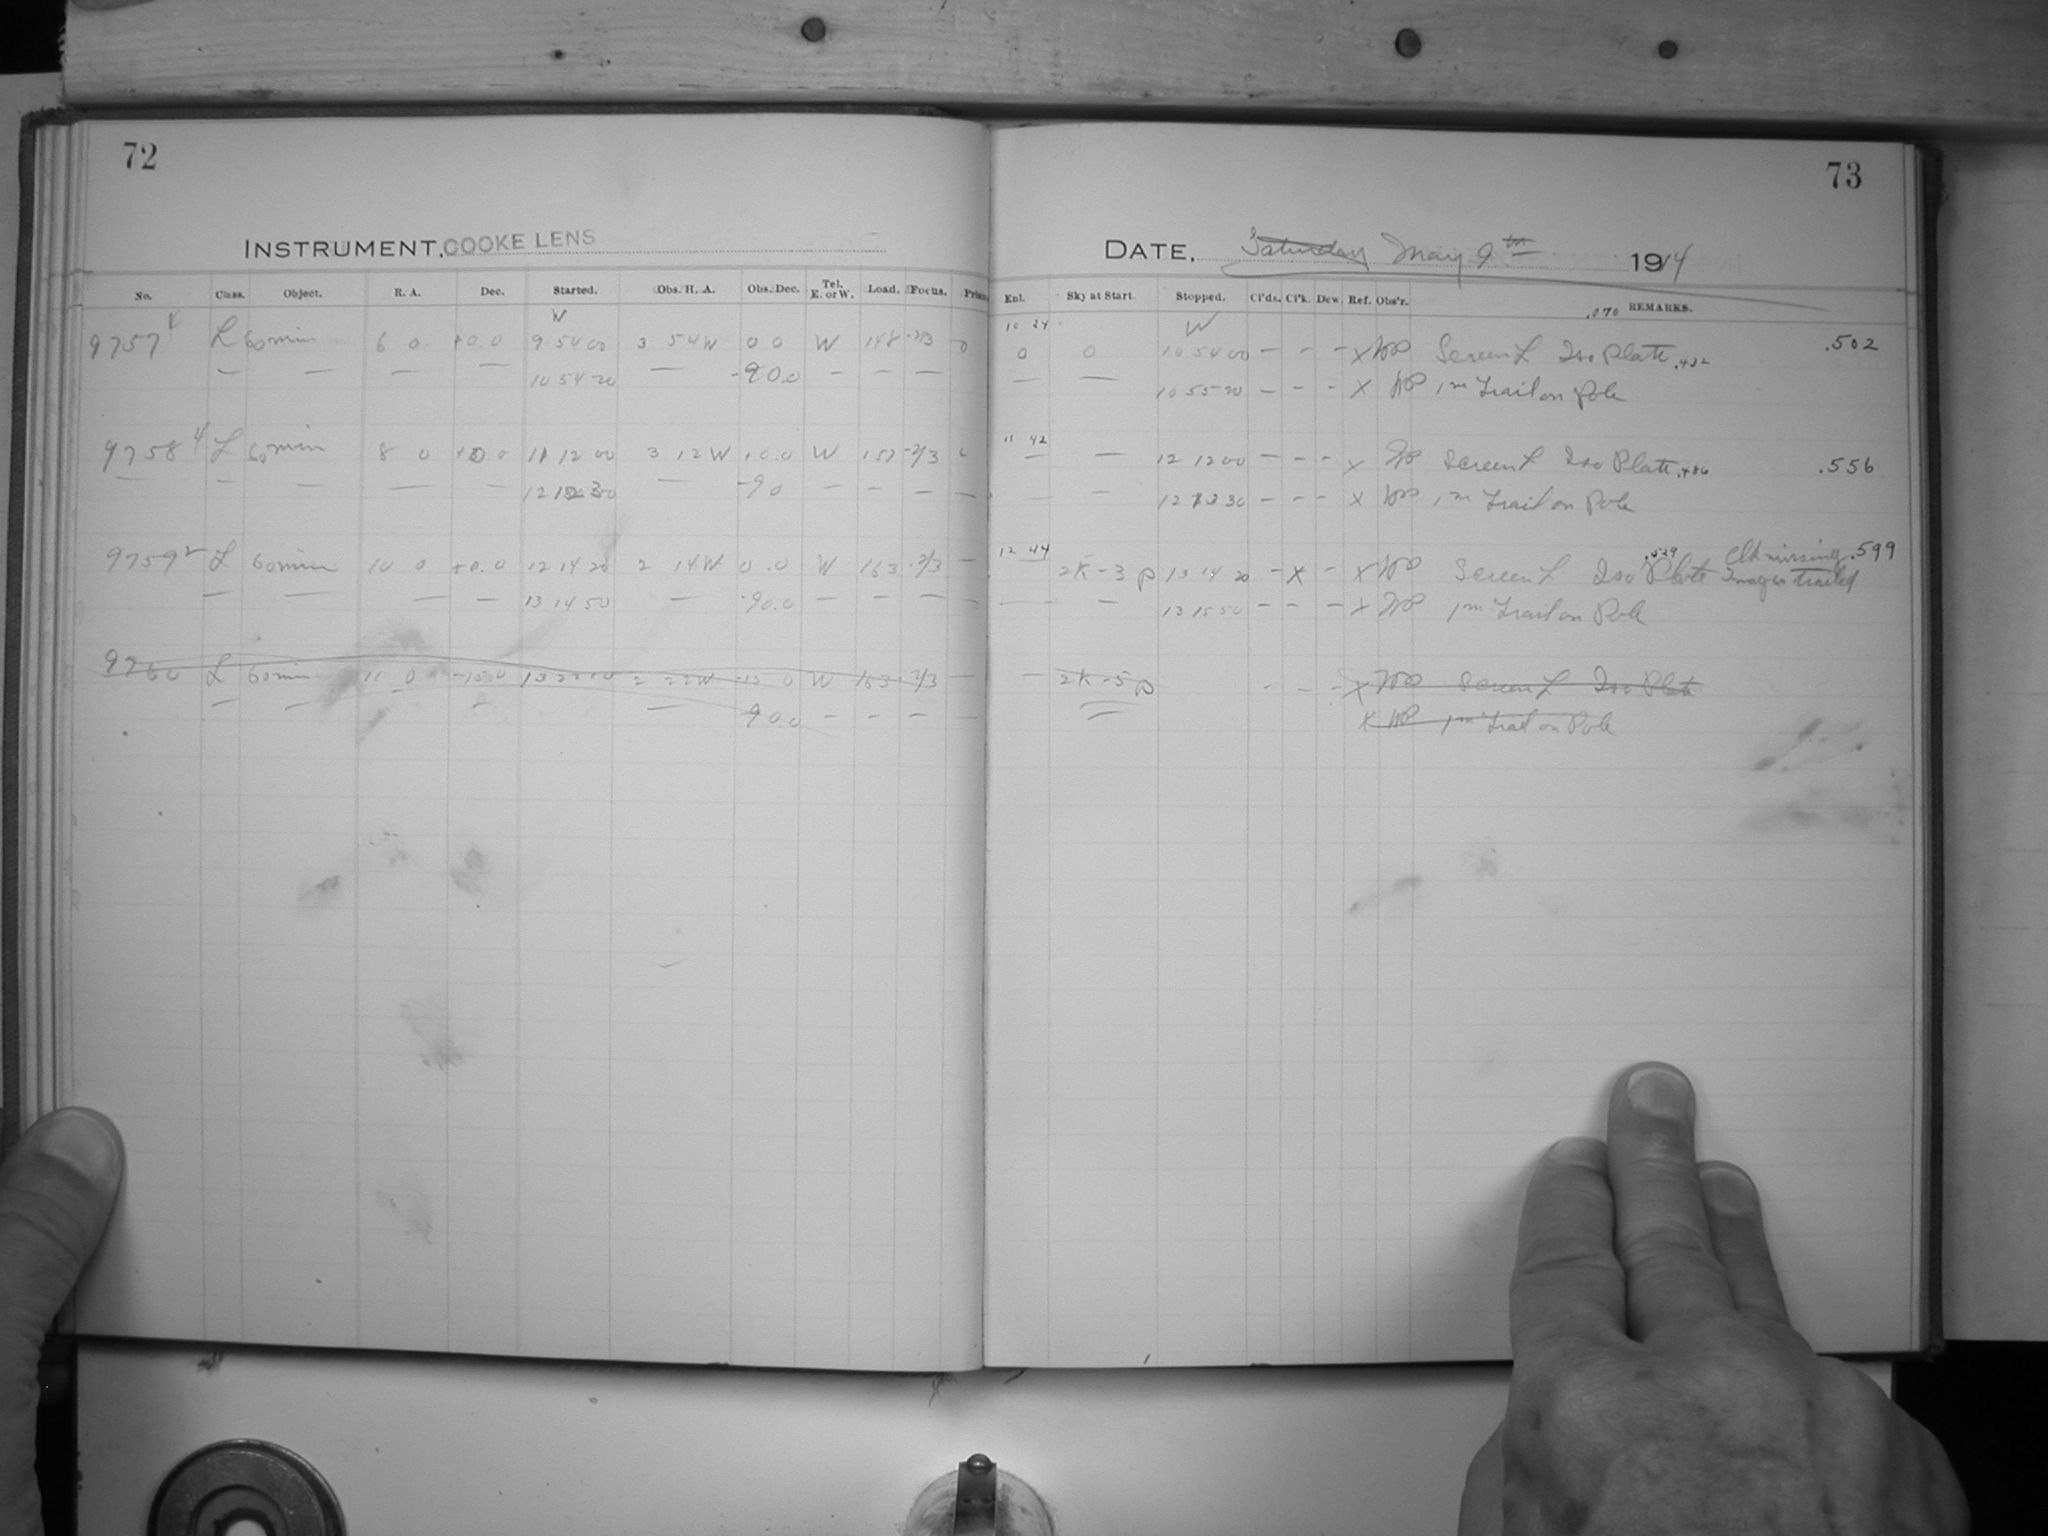 72
INSTRUMENT, COOKE LENS
No. Class. Object. R. A. Dec. Started. Obs. H. A. Obs. Dec. Tel. E. or W. Load. Focus.
W
9757 4 L 60 min 6 0 +0.0 9 54 00 3 54 W 0 0 W 148 -2/3 0
— — — — 10 54 20 — -90.0 — — —
9758 4 L 60 min 8 0 11 12 00 3 12 W +0.0 W 157 -2/3
— — — — — — -90 — — — —
9759 2 L 60 min 10 0 +0.0 12 14 20 2 14 W 0.0 W 163 -2/3 —
— — — — 13 14 50 — -90.0 — — — —
9760 L 60 min 11 0 -15.0 13 22 10 2 22 W -15.0 W 163 -2/3 —
— — — — 90.0 — — — —
73
DATE, Saturday May 9th 1914
Enl. Sky at Start. Stopped. Cl'ds. Cl'k. Dew. Ref. Obs'r. .070 REMARKS.
10 24 W
0 0 10 54 00 — — — x Screen L Iso Plate .432 .502
— — 10 55 20 — — — x 1m Trail on pole
11 42
— — 12 12 00 — — — x Screen L Iso Plate .486 .556
— — 12 13 30 — — — x 1m Trail on Pole
12 44 .529 Clk missing .599
— 2K-3 p 13 14 20 — x — x Screen L Iso Plate Images trailed
— — 13 15 50 — — — x 1m Trail on Pole
— 2K-5 p — — — x Screen L Iso Plate
x 1m Trail on Pole